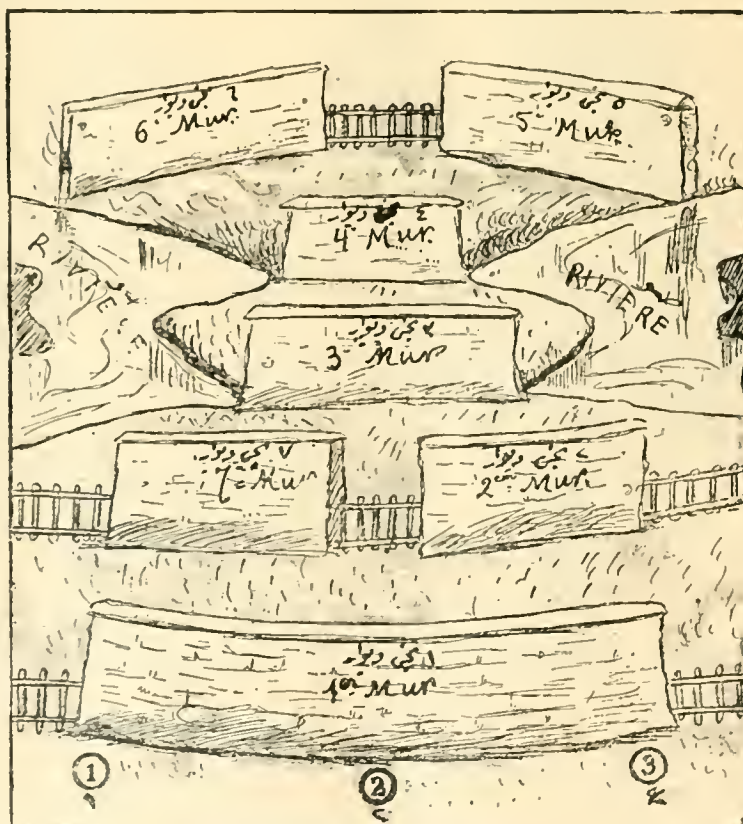 ٦ نجی دیوار
6ᵉ Mur.
٥ نجی دیوار
5ᵉ Mur.
٤ نجی دیوار
4ᵉ Mur.
RIVIERE
RIVIERE
٣ نجی دیوار
3ᵉ Mur
٧ نجی دیوار
7ᵉ Mur
٢ نجی دیوار
2ᵉᵐ Mur.
١ نجی دیوار
1ᵉʳ Mur
1
2
3
١
٢
٣